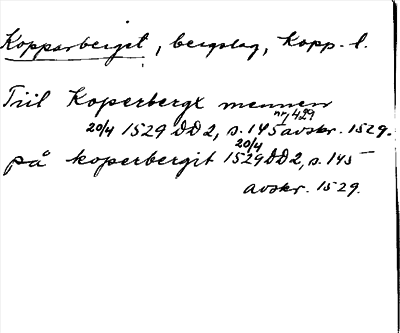 Kopparberget, bergslag, Kopp. l.
Tiil Koperbergx mennen
nr 429
20/4 1529 DD 2, s. 145 avskr. 1529.
på koperbergit 1529 20/4 DD 2, s. 145
avskr. 1529.